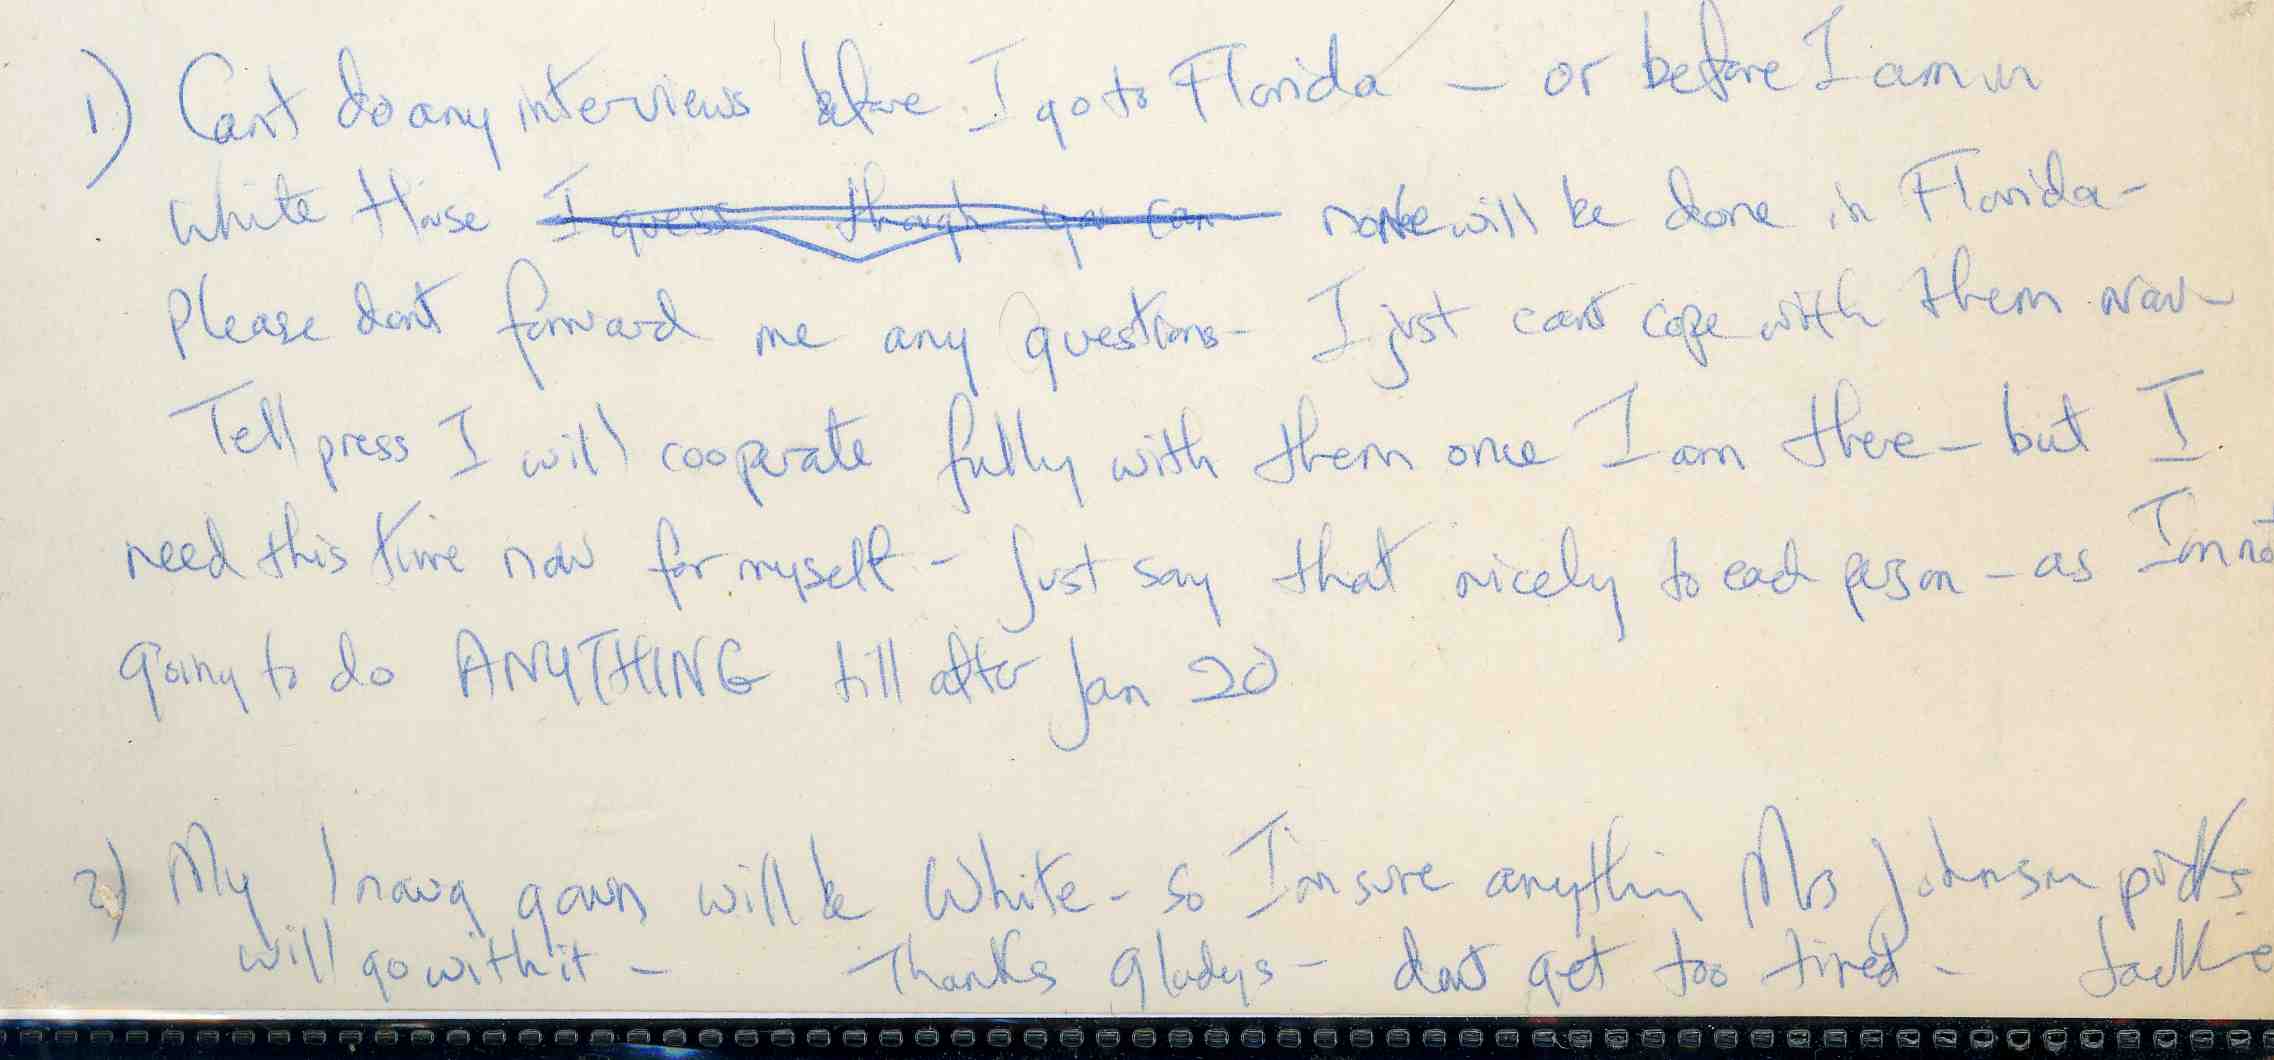 1) Cant do any interviews before I go to Florida – or before I am in
White House I guess though you can none will be done in Florida –
Please dont forward me any questions – I just cant cope with them now –
Tell press I will cooperate fully with them once I am there – but I
need this time now for myself – Just say that nicely to each person – as Im not
going to do ANYTHING till after Jan 20
2) My Inaug gown will be White – so Im sure anything Mrs Johnson picks
will go with it – Thanks Gladys – dont get too tired – Jackie